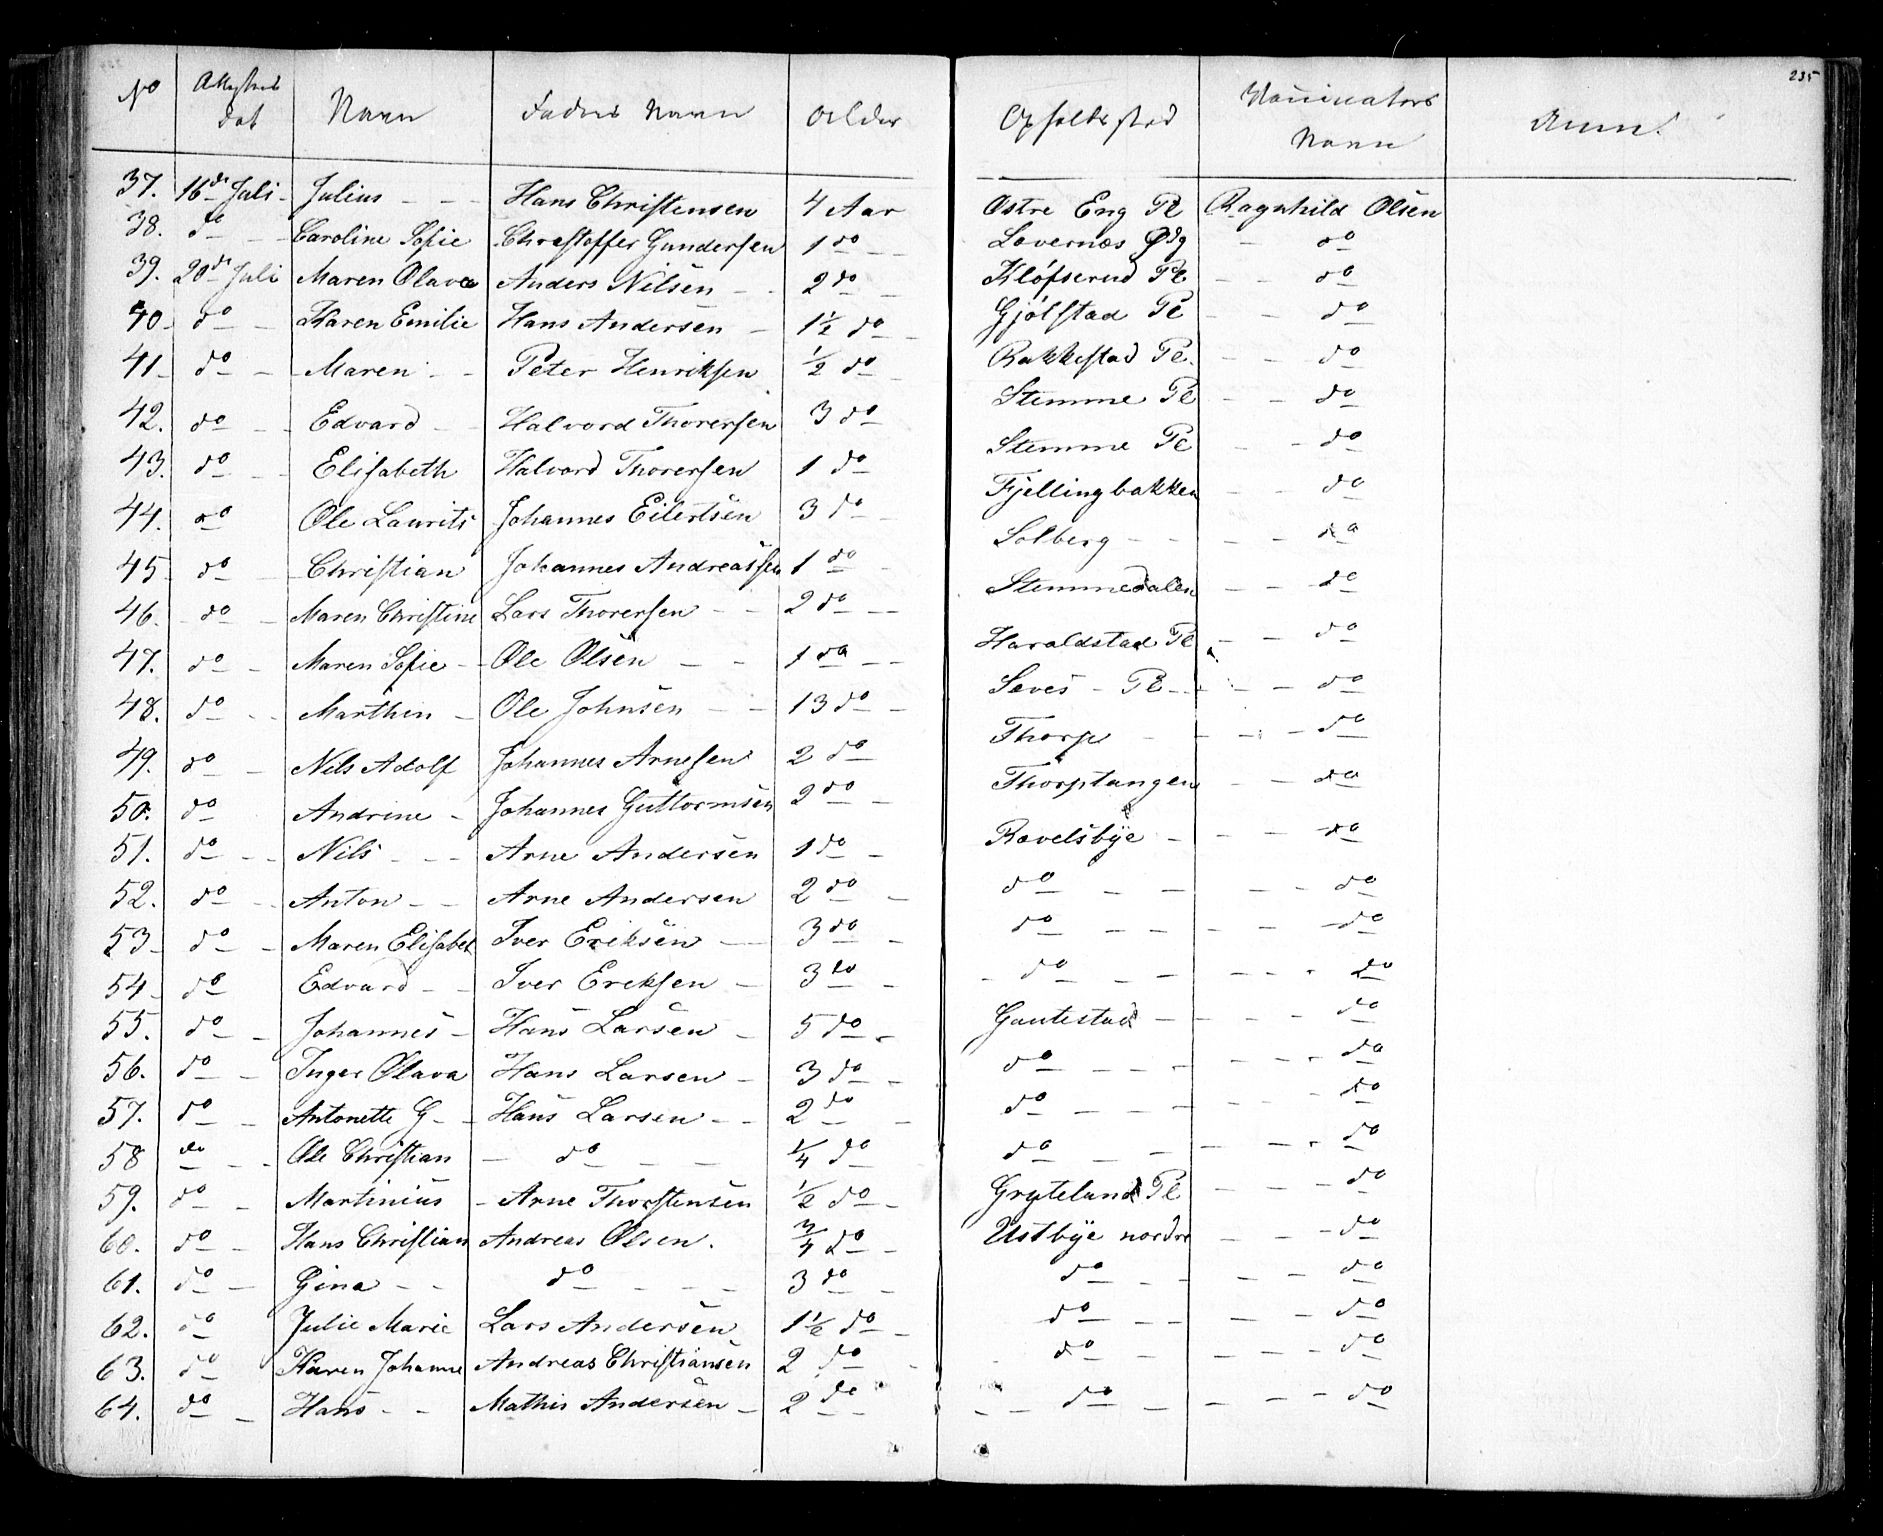 235
No | Attestens dat | Navn | Faders Navn | Alder | Opholdssted | Vaccinators Navn | Anm.
37. | 16de Juli | Julius | Hans Christensen | 4 Aar | Østre Eng Pl | Ragnhild Olsen
38. | do | Caroline Sofie | Christoffer Gundersen | 1 do | Løvernæs Pdg | do
39. | 20de Juli | Maren Olava | Anders Nilsen | 2 do | Kløfserud Pl | do
40 | do | Karen Emilie | Hans Andersen | 1½ do | Gjølstad Pl | do
41 | do | Maren | Peter Henriksen | ½ do | Bakkestad Pl. | do
42. | do | Edvard | Halvord Thorersen | 3 do | Stemme Pl | do
43. | do | Elisabeth | Halvord Thorersen | 1 do | Stemme Pl | do
44. | do | Ole Laurits | Johannes Eilertsen | 3 do | Fjellingbakken | do
45 | do | Christian | Johannes Andreassen | 1 do | Solberg | do
46. | do | Maren Christine | Lars Thorersen | 2 do | Stemmedalen | do
47. | do | Maren Sofie | Ole Olsen | 1 do | Haraldstad Pl | do
48. | do | Marthin | Ole Johnsen | 13 do | Sæves Pl | do
49. | do | Nils Adolf | Johannes Arnesen | 2 do | Thorp | do
50. | do | Andrine | Johannes Guttormsen | 2 do | Thorptangen | do
51. | do | Nils | Arne Andersen | 1 do | Ravelsbye | do
52. | do | Anton | Arne Andersen | 2 do | do | do
53 | do | Maren Elisabet | Iver Eriksen | 3 do | do | do
54 | do | Edvard | Iver Ericksen | 3 do | do | do
55. | do | Johannes | Hans Larsen | 5 do | Gautestad | do
56. | do | Inger Olava | Hans Larsen | 3 do | do | do
57. | do | Antonette G | Hans Larsen | 2 do | do | do
58 | do | Ole Christian | do | ¼ do | do | do
59. | do | Martinius | Arne Thorstensen | ½ do | Gryteland Pl | do
60. | do | Hans Christian | Andreas Olsen. | ¾ do | Ustbye nordre | do
61. | do | Gina | do | 3 do | do | do
62. | do | Julie Marie | Lars Andersen | 1½ do | do | do
63. | do | Karen Johanne | Andreas Christiansen | 2 do | do | do
64. | do | Hans | Mathis Andersen | 2 do | do | do